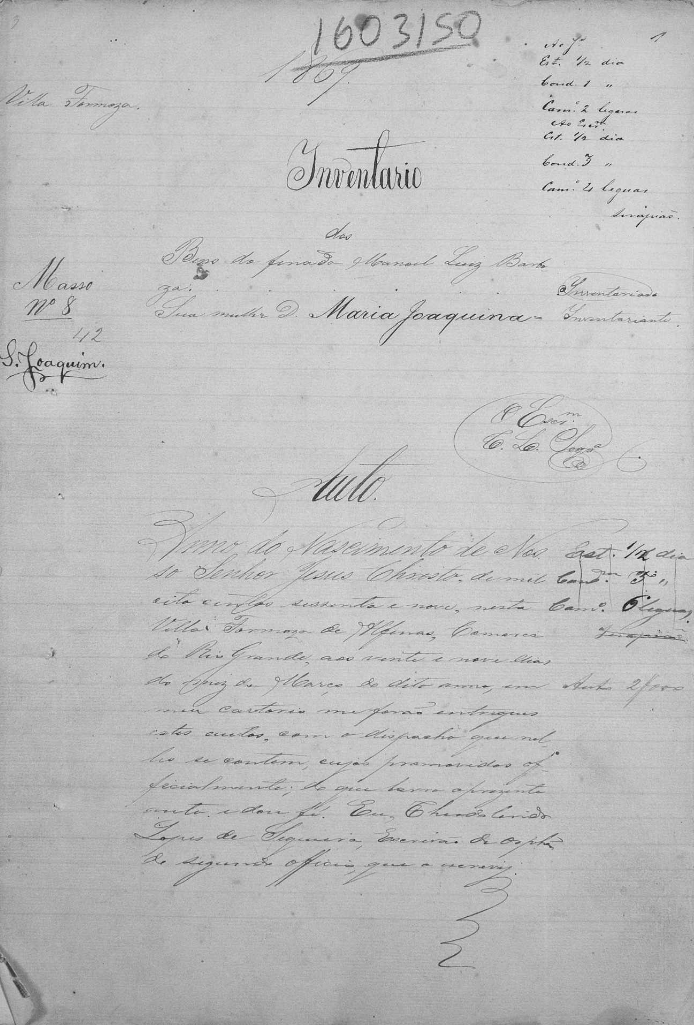 1603150
1
1869.
Villa Formoza.
Ao Jº
Est. 1/2 dia
Cond. 1 "
Camº 2 leguas
Ao Escm.
Est. 1/2 dia
Cond. 3 "
Camº 4 leguas
Inventario
dos
Bens do finado Manoel Luiz Barbo
za. Inventariado
Sua mulher D. Maria Joaquina = Inventariante.
Masso
Nº 8
42
S. Joaquim.
O Escm
T. L. Seqrª
Auto.
Anno do Nascimento de Nos
so Senhor Jesus Christo de mil
oito centos sessenta e nove, nesta
Villa Formoza de Alfenas, Comarca
do Rio Grande, aos vinte e nove dias
do mez de Março do dito anno, em
meu cartorio me forão entregues
estes autos, com o despacho que nel
les se contem, cujos promovidos of
ficialmente; do que lavro o presente
auto e dou fé. Eu, Theodolindo
Lopes de Sequeira, Escrivão de Orphã
do segundo officio, que o escrevy.
Est. 1/2 dia
Condm. 3 "
Camº. 6 leguas
Auto 2$000